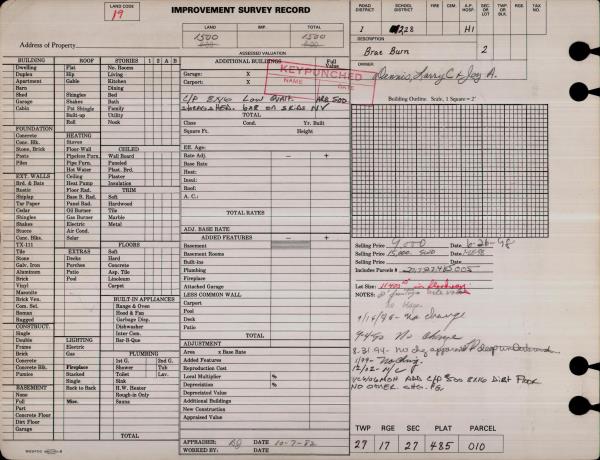 LAND CODE
19
IMPROVEMENT SURVEY RECORD
LAND IMP. TOTAL
1500 1500
Address of Property
ASSESSED VALUATION
ROAD DISTRICT SCHOOL DISTRICT FIRE CEM. A.P. HOSP. SEC. OR LOT TWP. OR BLK. RGE. TAX NO.
1 228 H1
DESCRIPTION
Brae Burn 2
OWNER
Dennis, Larry C & Joy A.
KEYPUNCHED
NAME DATE
BUILDING ROOF STORIES 1 2 A B
Dwelling Flat No. Rooms
Duplex Hip Living
Apartment Gable Kitchen
Barn Dining
Shed Shingles Bed
Garage Shakes Bath
Cabin Utility
Built-up Utility
Roll Nook
FOUNDATION
Concrete HEATING
Conc. Blk. Stoves
Stone, Bl. Floor-Wall CEILED
Posts Pipeless Furn. Wall Board
Piles Pipe Furn. Paneled
Hot Water Plast. Brd.
EXT. WALLS Ceiling Plaster
Brd. & Bats Heat Pump Insulation
Rustic Floor Rad. TRIM
Shiplap Base B. Rad. Soft
Tar Paper Panel Rad. Hardwood
Cedar Oil Burner Tile
Shingles Gas Burner Marble
Shakes Electric Metal
Stucco Air Cond.
Conc. Blks. Solar
TX-111 FLOORS
Tile EXTRAS Soft
Stone Decks Hard
Galv. Iron Porches Concrete
Aluminum Patio Asp. Tile
Brick Pool Linoleum
Vinyl Carpet
Masonite
Brick Ven. BUILT-IN APPLIANCES
Com. Sel. Range & Oven
Roman Hood & Fan
Rugged Garbage Disp.
CONSTRUCT. Dishwasher
Single Inter Com.
Double LIGHTING Bar-B-Que
Frame Electric
Brick Gas PLUMBING
Concrete 1st G. 2nd G.
Concrete Blk. Fireplace Shower Tub
Pumice Stacked Toilet Lav.
Single Sink
BASEMENT Back to Back H.W. Heater
None Rough-in Only
Full Misc. Sauna
Part
Concrete Floor
Dirt Floor
Garage
TOTAL
ADDITIONAL BUILDINGS Full Value
Garage: X
Carport: X
C/P 8X60 LOW QUAL. ARB 500
TOTAL
Class Cond. Yr. Built
Square Ft. Height
Eff. Age:
Rate Adj. — +
Base Rate
Heat:
Insul:
Roof:
A. C.:
TOTAL RATES
ADJ. BASE RATE
ADDED FEATURES — +
Basement
Basement Rooms
Built-ins
Plumbing
Fireplace
Attached Garage
LESS COMMON WALL
Carport
Pool
Deck
Patio
TOTAL
ADJUSTMENT
Area x Base Rate
Added Features
Reproduction Cost
Local Multiplier %
Depreciation %
Depreciated Value
Additional Buildings
New Construction
Appraised Value
APPRAISER BJ DATE 10-7-82
WORKED BY: DATE
Building Outline. Scale, 1 Square = 2'
Selling Price 9000 Date 6-26-78
Selling Price 15,000 SWD Date
Selling Price Date
Includes Parcels #
Lot Size:
NOTES:
no change
No Change
8-31-94
NO OTHER CHG.
TWP RGE SEC PLAT PARCEL
27 17 27 485 010